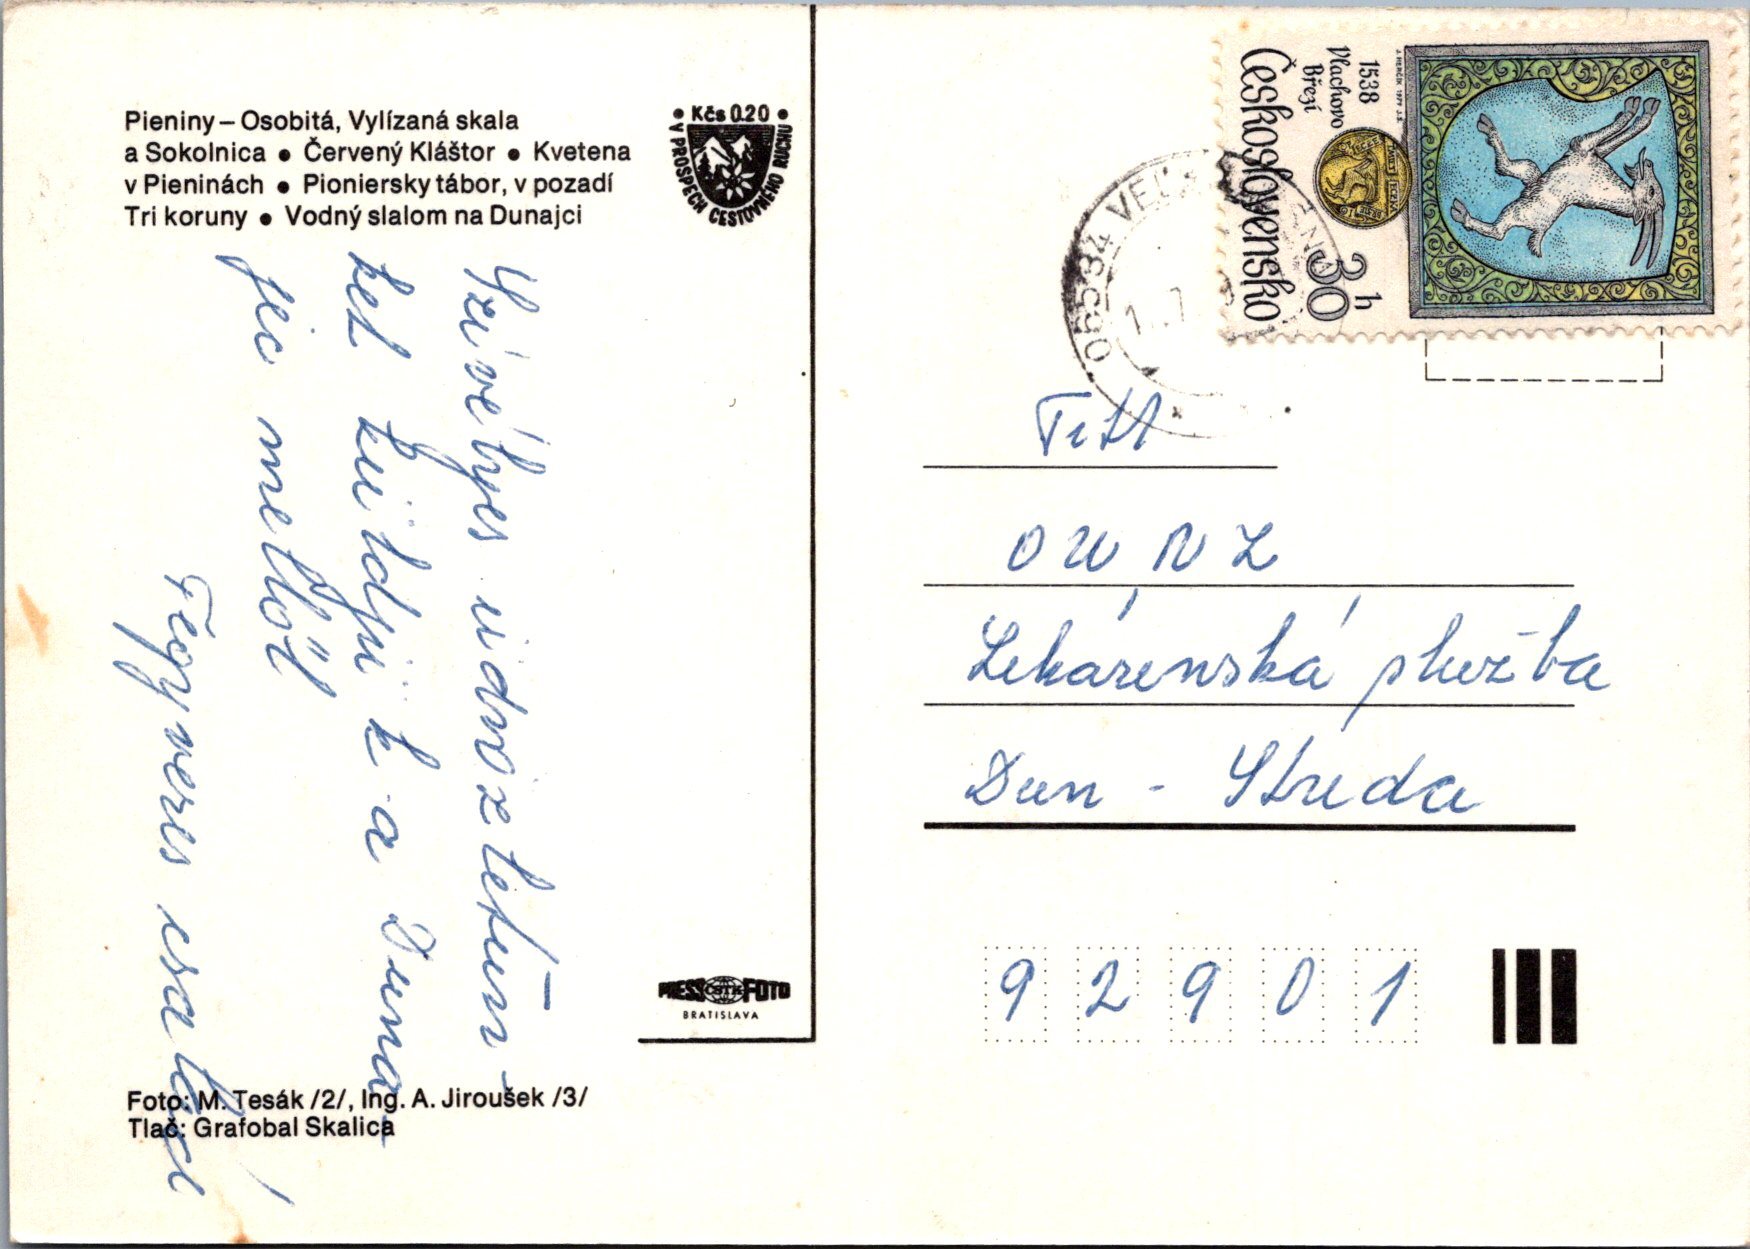 Pieniny – Osobitá, Vylízaná skala
a Sokolnica ● Červený Kláštor ● Kvetena
v Pieninách ● Pioniersky tábor, v pozadí
Tri koruny ● Vodný slalom na Dunajci
• Kčs 0.20 •
V PROSPECH CESTOVNÉHO RUCHU
Szívélyes üdvözletün-
ket küldjük a Duna-
jec mellől
Fegyveres család
PRESS ČSTK FOTO
BRATISLAVA
Foto: M. Tesák /2/, Ing. A. Jiroušek /3/
Tlač: Grafobal Skalica
1538
Vlachovo
Březí
Československo
30 h
J. HERČÍK 1979 J.S.
065 34
Titl
OUNZ
Lekárenská služba
Dun - Streda
92901